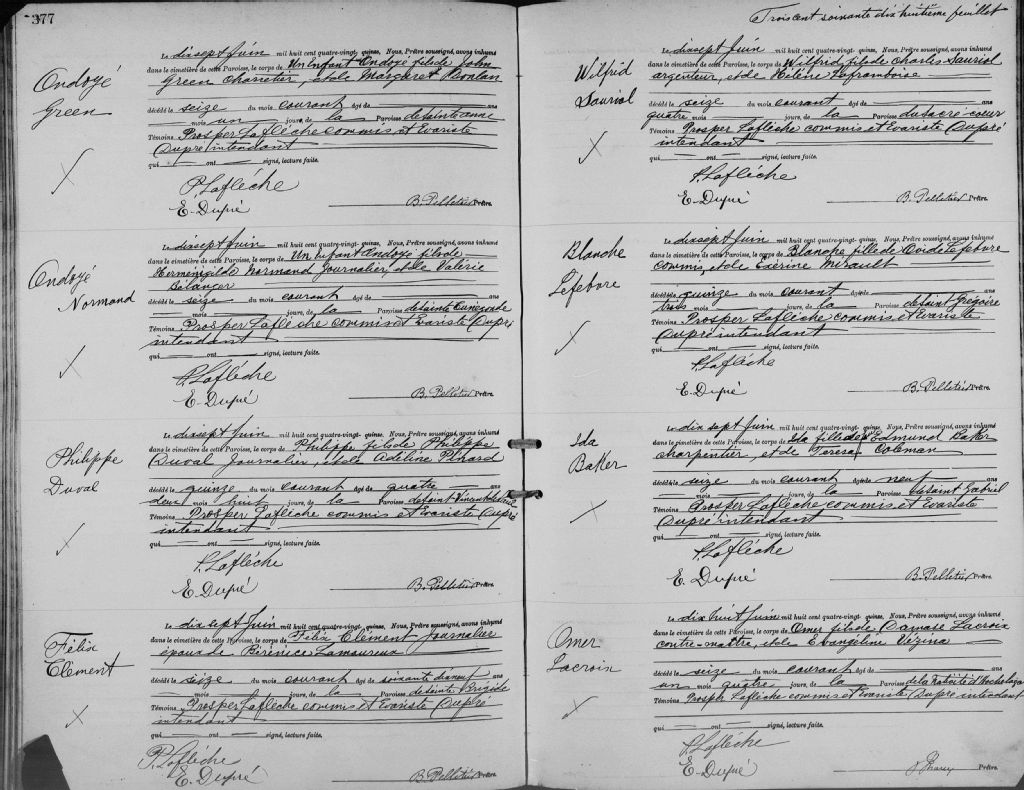 377
Ondoyé
Green
Le dixsept Juin mil huit cent quatre-vingt-quinze, Nous, Prêtre soussigné, avons inhumé
dans le cimetière de cette Paroisse, le corps de Un Enfant Ondoyé fils de John
Green Charretier, et de Margaret
décédé le seize du mois courant âgé de ans
mois un jours, de la Paroisse de sainte anne
Témoins Prosper Laflèche commis et Evariste
Dupré intendant
qui ont signé, lecture faite.
P. Laflèche
E. Dupré
B. Pelletier Prêtre.
Ondoyé
Normand
Le dixsept Juin mil huit cent quatre-vingt-quinze, Nous, Prêtre soussigné, avons inhumé
dans le cimetière de cette Paroisse, le corps de Un Enfant Ondoyé fils de
Herménigilde Normand Journalier, et de Valérie
Bélanger
décédé le seize du mois courant âgé de ans
mois jours, de la Paroisse de sainte Cunégonde
Témoins Prosper Laflèche commis et Evariste Dupré
intendant
qui ont signé, lecture faite.
P. Laflèche
E. Dupré
B. Pelletier Prêtre.
Philippe
Duval
Le dixsept Juin mil huit cent quatre-vingt-quinze, Nous, Prêtre soussigné, avons inhumé
dans le cimetière de cette Paroisse, le corps de Philippe fils de Philippe
Duval Journalier, et de Adéline Pinard
décédé le quinze du mois courant âgé de quatre ans
deux mois huit jours, de la Paroisse de saint Vincent de Paul
Témoins Prosper Laflèche commis et Evariste Dupré
intendant
qui ont signé, lecture faite.
P. Laflèche
E. Dupré
B. Pelletier Prêtre.
Félix
Clément
Le dixsept Juin mil huit cent quatre-vingt-quinze, Nous, Prêtre soussigné, avons inhumé
dans le cimetière de cette Paroisse, le corps de Félix Clément Journalier
époux de Bérénice Lamoureux
décédé le seize du mois courant âgé de soixante dix neuf ans
mois jours, de la Paroisse de sainte Brigide
Témoins Prosper Laflèche commis et Evariste Dupré
intendant
qui ont signé, lecture faite.
P. Laflèche
E. Dupré
B. Pelletier Prêtre.
Trois cent soixante dix huitième feuillet
Wilfrid
Sauriol
Le dixsept Juin mil huit cent quatre-vingt-quinze, Nous, Prêtre soussigné, avons inhumé
dans le cimetière de cette Paroisse, le corps de Wilfrid fils de Charles Sauriol
argenteur, et de Hélène Laframboise
décédé le seize du mois courant âgé de ans
quatre mois jours, de la Paroisse du sacré-coeur
Témoins Prosper Laflèche commis et Evariste Dupré
intendant
qui ont signé, lecture faite.
P. Laflèche
E. Dupré
B. Pelletier Prêtre.
Blanche
Lefebvre
Le dixsept Juin mil huit cent quatre-vingt-quinze, Nous, Prêtre soussigné, avons inhumé
dans le cimetière de cette Paroisse, le corps de Blanche fille de Ovide Lefebvre
commis et de Exérine Mirault
décédé le quinze du mois courant âgé de ans
trois mois jours, de la Paroisse de saint Grégoire
Témoins Prosper Laflèche commis et Evariste
Dupré intendant
qui ont signé, lecture faite.
P. Laflèche
E. Dupré
B. Pelletier Prêtre.
Ida
Baker
Le dix sept Juin mil huit cent quatre-vingt-quinze, Nous, Prêtre soussigné, avons inhumé
dans le cimetière de cette Paroisse, le corps de Ida fille de Edmund Baker
charpentier, et de Teresa Coleman
décédé le seize du mois courant âgé de neuf ans
mois jours, de la Paroisse de saint Gabriel
Témoins Prosper Laflèche commis et Evariste
Dupré intendant
qui ont signé, lecture faite.
P. Laflèche
E. Dupré
B. Pelletier Prêtre.
Omer
Lacroix
Le dix huit Juin mil huit cent quatre-vingt-quinze, Nous, Prêtre soussigné, avons inhumé
dans le cimetière de cette Paroisse, le corps de Omer fils de Damase Lacroix
contre-maître, et de Evangéline Vézina
décédé le seize du mois courant âgé de ans
un mois quatre jours, de la Paroisse de la Nativité d'Hochelaga
Témoins Prosper Laflèche commis et Evariste Dupré intendant
qui ont signé, lecture faite.
P. Laflèche
E. Dupré
Prêtre.